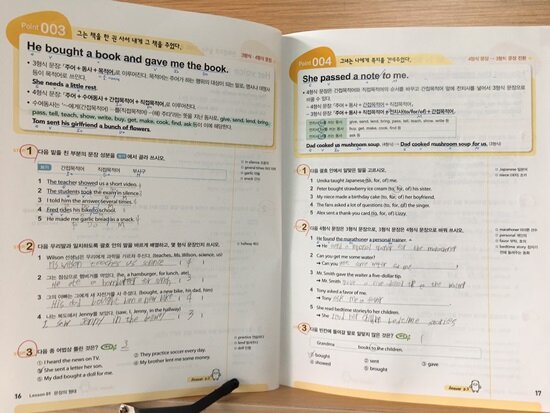 Point 003
그는 책을 한 권 사서 내게 그 책을 주었다.
3형식 · 4형식 문장
He bought a book and gave me the book.
• 3형식 문장: 「주어+동사+목적어」로 이루어진다. 목적어는 주어가 하는 행위의 대상이 되는 말로, 명사나 대명사
등이 목적어로 쓰인다.
She needs a little rest.
• 4형식 문장: 「주어+수여동사+간접목적어+직접목적어」로 이루어진다.
• 수여동사는 '~에게(간접목적어) …을(직접목적어) (해) 주다'라는 뜻을 지닌 동사로, give, send, lend, bring,
pass, tell, teach, show, write, buy, get, make, cook, find, ask 등이 이에 해당한다.
Tom sent his girlfriend a bunch of flowers.
1 다음 밑줄 친 부분의 문장 성분을 보기에서 골라 쓰시오.
보기 간접목적어 직접목적어 부사구
1 The teacher showed us a short video.
2 The students took the exam in silence.
3 I told him the answer several times.
4 Fred rides his bike to school.
5 He made me garlic bread as a snack.
2 다음 우리말과 일치하도록 괄호 안의 말을 바르게 배열하고, 몇 형식 문장인지 쓰시오.
1 Wilson 선생님은 우리에게 과학을 가르쳐 주신다. (teaches, Ms. Wilson, science, us)
2 그는 점심으로 햄버거를 먹었다. (he, a hamburger, for lunch, ate)
3 그의 아빠는 그에게 새 자전거를 사 주셨다. (bought, a new bike, his dad, him)
4 나는 복도에서 Jenny를 보았다. (saw, I, Jenny, in the hallway)
I saw Jenny in the hallway
3 다음 중 어법상 틀린 것은?
① I heard the news on TV. ② They practice soccer every day.
③ She sent a letter her son. ④ My brother lent me some money.
⑤ My dad bought a doll for me.
in silence 조용히
garlic 마늘
snack 간식
hallway 복도
practice 연습하다
16 Lesson 01 문장의 형태
Answer
Point 004
그녀는 나에게 쪽지를 건네주었다.
4형식 문장 → 3형식 문장 전환
She passed a note to me.
• 4형식 문장은 간접목적어와 직접목적어의 순서를 바꾸고 간접목적어 앞에 전치사를 넣어서 3형식 문장으로
바꿀 수 있다.
give, send, lend, bring, pass, tell, teach, show, write 등
buy, get, make, cook, find 등
ask 등
Dad cooked us mushroom soup. Dad cooked mushroom soup for us. (3형식)
1 다음 괄호 안에서 알맞은 말을 고르시오.
1 Unika taught Japanese (to, for, of) me.
2 Peter bought strawberry ice cream (to, for, of) his sister.
3 My niece made a birthday cake (to, for, of) her boyfriend.
4 The fans asked a lot of questions (to, for, of) the singer.
5 Alex sent a thank you card (to, for, of) Lizzy.
2 다음 4형식 문장은 3형식으로, 3형식 문장은 4형식 문장으로 바꿔 쓰시오.
1 He found the marathoner a personal trainer.
→ He
2 Can you get me some water?
→ Can you
3 Mr. Smith gave the waiter a five-dollar tip.
→ Mr. Smith
4 Tony asked a favor of me.
→ Tony ask me a favor
5 She read bedtime stories to her children.
→ She read her children bedtime stories
3 다음 빈칸에 들어갈 말로 알맞지 않은 것은?
Grandma books to the children.
① bought ② sent ③ gave
④ showed ⑤ brought
Japanese 일본어
niece (여자) 조카
marathoner 마라톤 선수
personal 개인의
favor 부탁, 호의
bedtime story
Answer
17